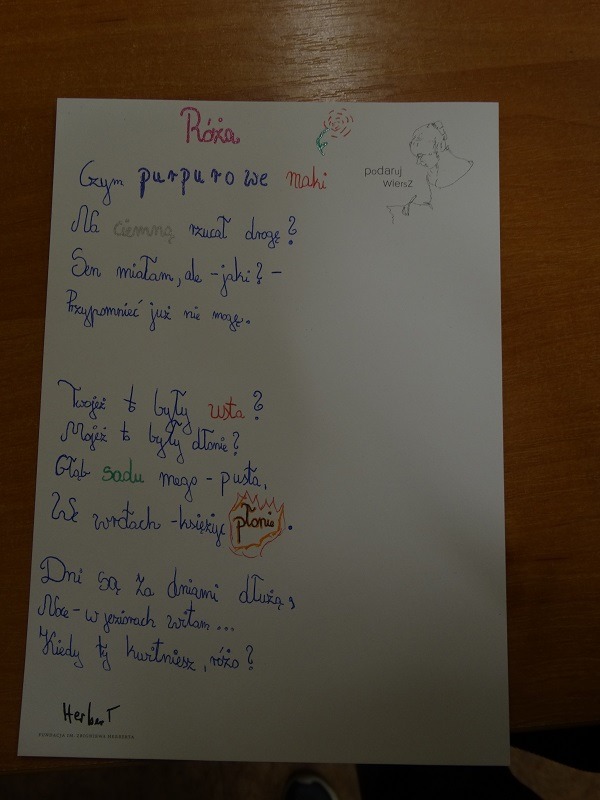 Róża
podaruj
wiersz
Czym purpurowe maki
Na ciemną rzucał drogę?
Sen miałam, ale - jaki? -
Przypomnieć już nie mogę.
Twojeż to były usta?
Mojeż to były dłonie?
Głąb sadu mego - pusta,
We wrotach - księżyc płonie.
Dni są za dniami dłużą,
Noce - w jeziorach witam...
Kiedy ty kwitniesz, różo?
Herbert
FUNDACJA IM. ZBIGNIEWA HERBERTA